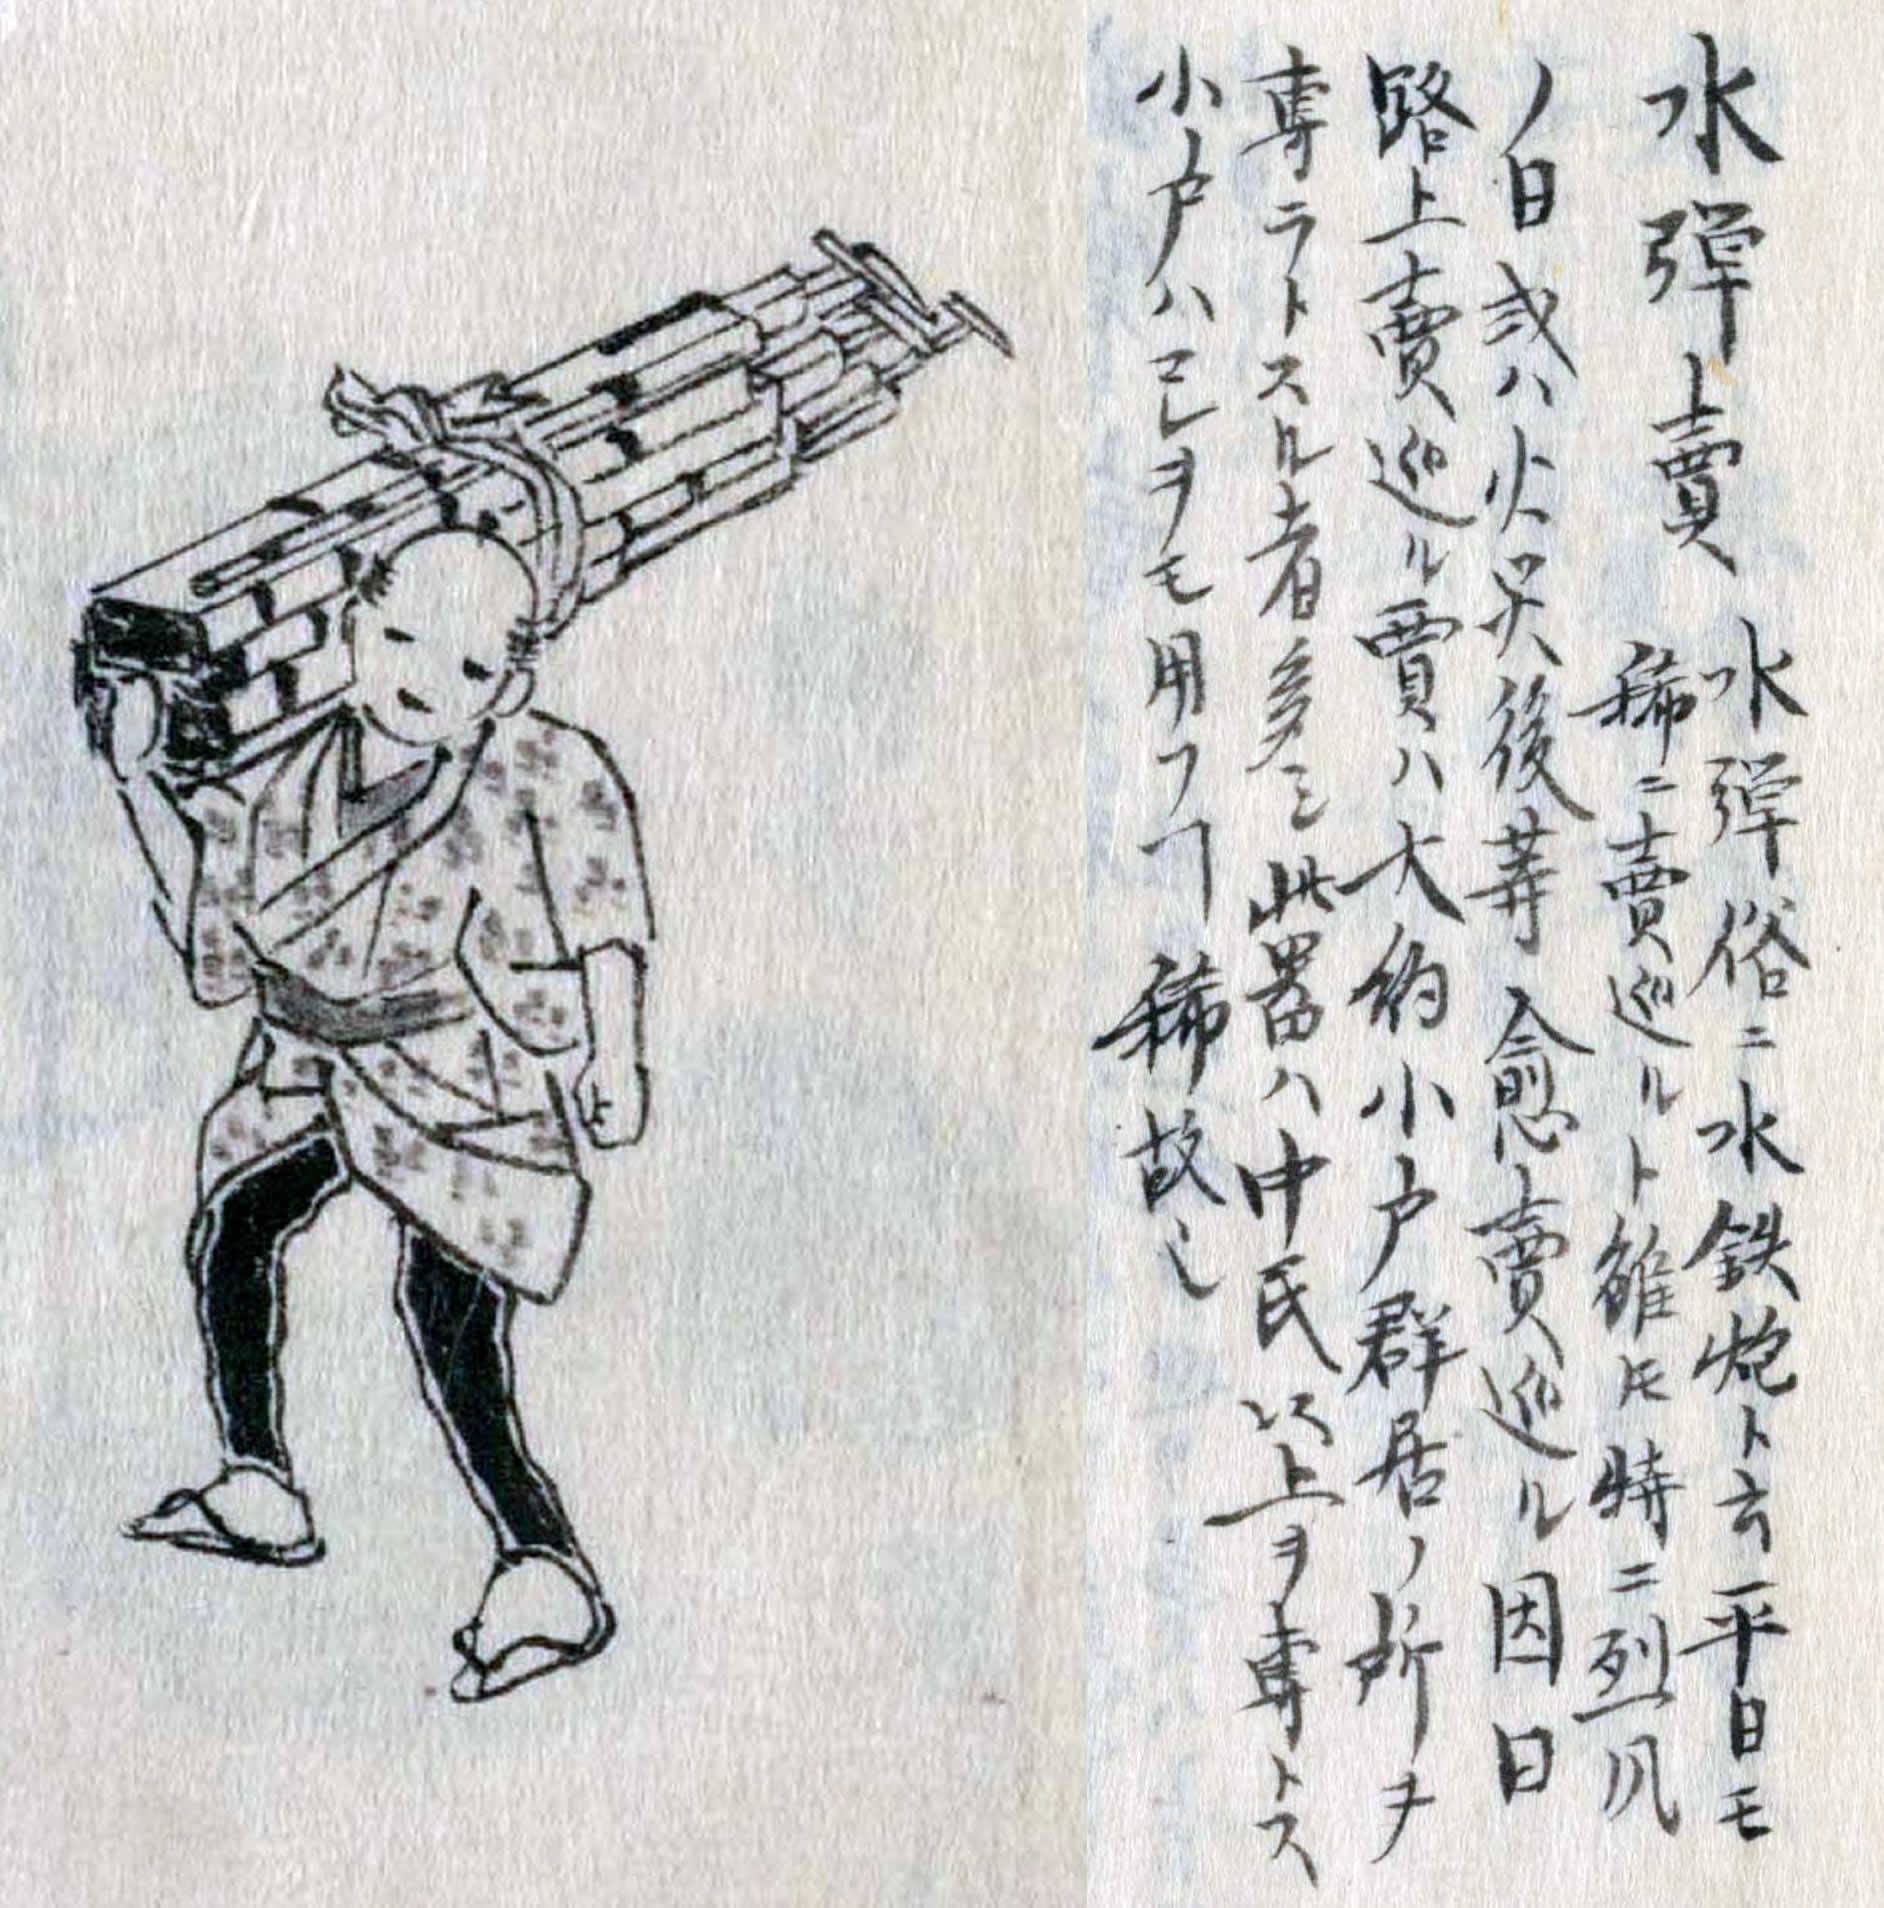 水弾賣
水弾俗ニ水鉄炮ト云平日モ
稀ニ賣巡ルト雖𪜈特ニ烈風
ノ日或ハ火災後等愈賣巡ル因曰
路上賣巡ル賈ハ大約小户群居ノ所ヲ
専ラトスル者多シ此器ハ中民以上ヲ専トス
小户ハコレヲモ用フヿ稀故也